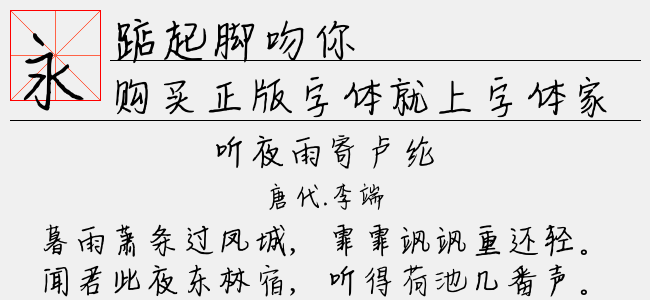 永
踮起脚吻你
购买正版字体就上字体家
听夜雨寄卢纶
唐代.李端
暮雨萧条过凤城，霏霏飒飒重还轻。
闻君此夜东林宿，听得荷池几番声。